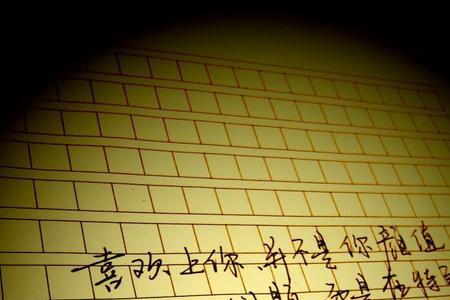 喜欢上你并不是你颜值
而是在特